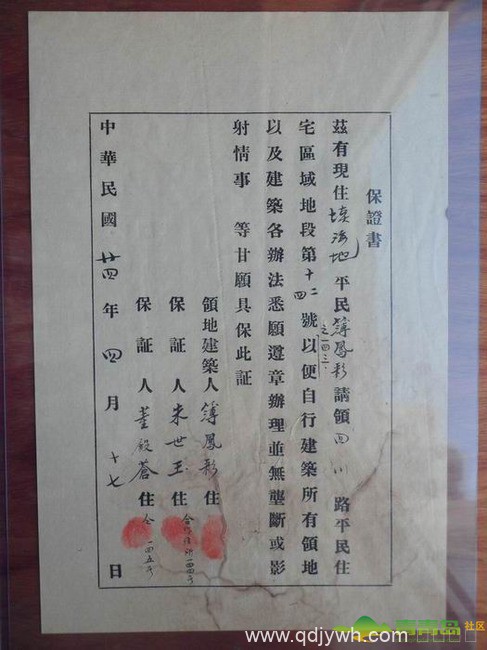 保證書
茲有現住 海地 平民薄鳳彩請領四川路平民住
宅區域地段第十二號以便自行建築所有領地
四 之一四三
以及建築各辦法悉願遵章辦理並無壟斷或影
射情事 等甘願具保此証
領地建築人 薄鳳彩 住
保証人 朱世玉 住 一四四号
保証人 董殿蒼 住 仝 一四五号
中華民國廿四年四月十七日
www.qdjywh.com
青青岛社区